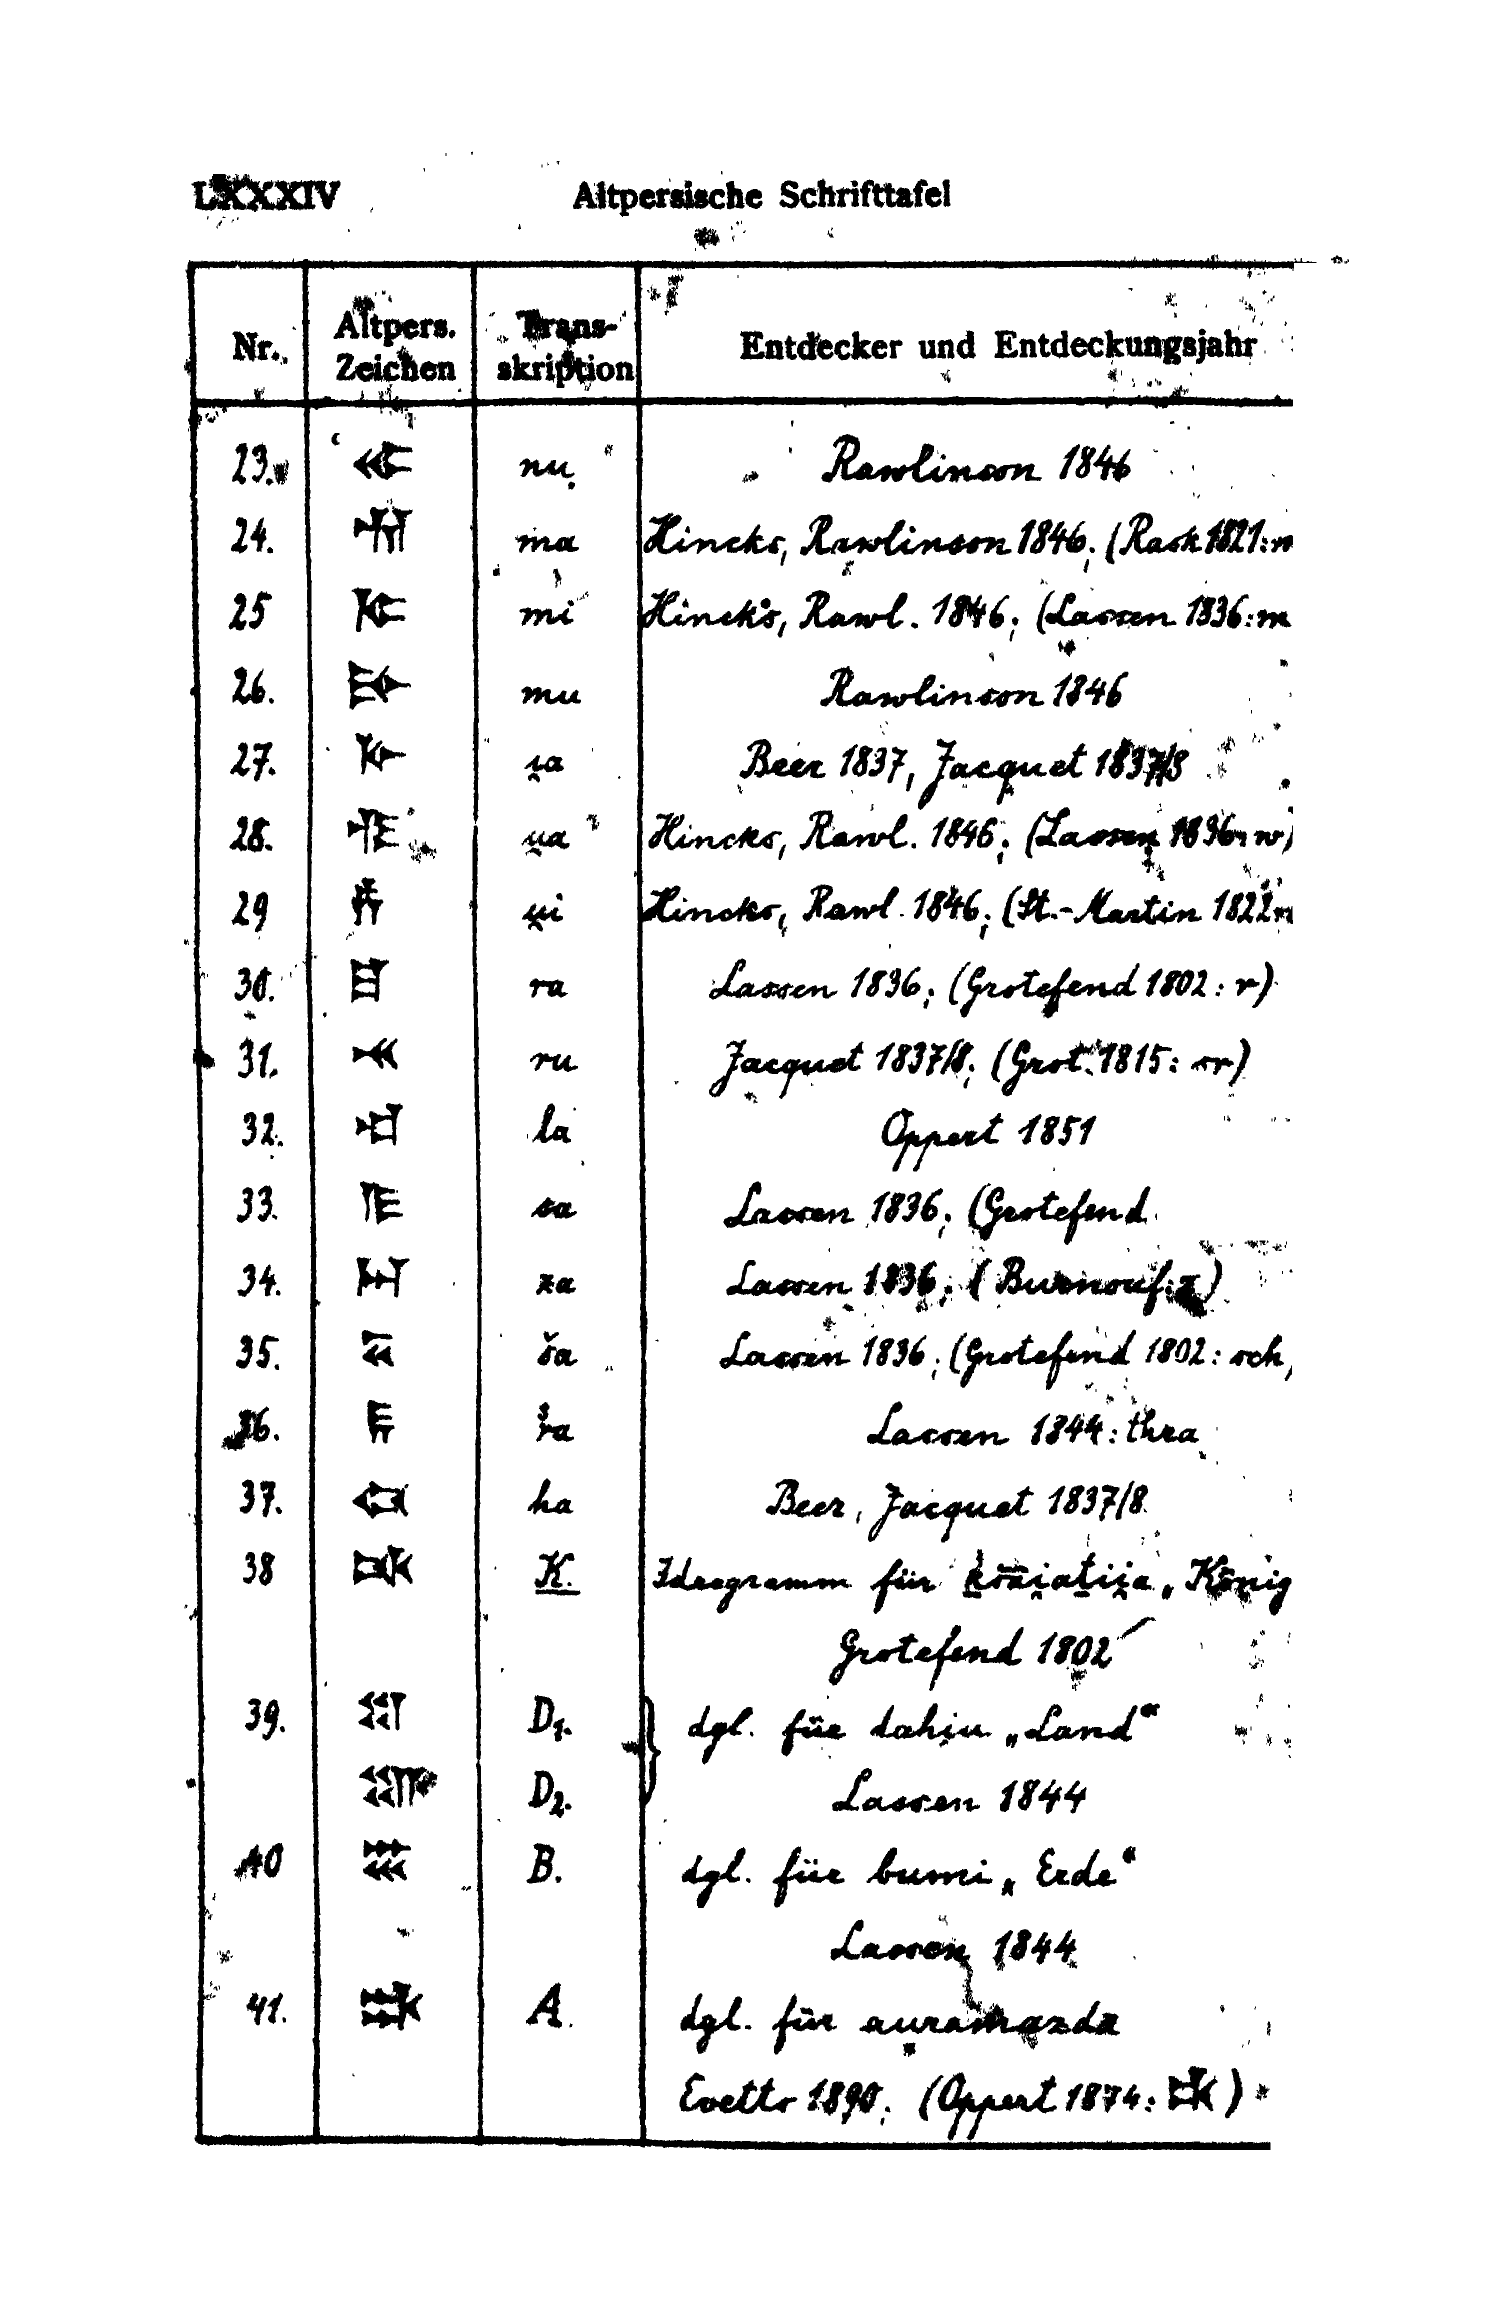 LXXXIV Altpersische Schrifttafel
Nr. Altpers. Zeichen Trans-skription Entdecker und Entdeckungsjahr
23. 𐎵 nu Rawlinson 1846
24. 𐎶 ma Hincks, Rawlinson 1846; (Rask 1821: m
25 𐎷 mi Hincks, Rawl. 1846; (Lassen 1836: m
26. 𐎸 mu Rawlinson 1846
27. 𐎹 i̯a Beer 1837, Jacquet 1837/8
28. 𐎺 u̯a Hincks, Rawl. 1846; (Lassen 1836: w)
29 𐎻 u̯i Hincks, Rawl. 1846; (St.-Martin 1822:
30. 𐎼 ra Lassen 1836; (Grotefend 1802: r)
31. 𐎽 ru Jacquet 1837/8; (Grot. 1815: sr)
32. 𐎾 la Oppert 1851
33. 𐎿 sa Lassen 1836; (Grotefend
34. 𐏀 za Lassen 1836; (Burnouf: z)
35. 𐏁 ša Lassen 1836; (Grotefend 1802: sch)
36. 𐏂 ra Lassen 1844: thra
37. 𐏃 ha Beer, Jacquet 1837/8
38 𐏋 K. Ideogramm für „König
Grotefend 1802
39. 𐏌 D₁. dgl. für dahi̯u „Land“
𐏍 D₂. Lassen 1844
40 𐏏 B. dgl. für bumi „Erde“
Lassen 1844
41. 𐏈 A. dgl. für auramazda
Evetts 1890; (Oppert 1874: )